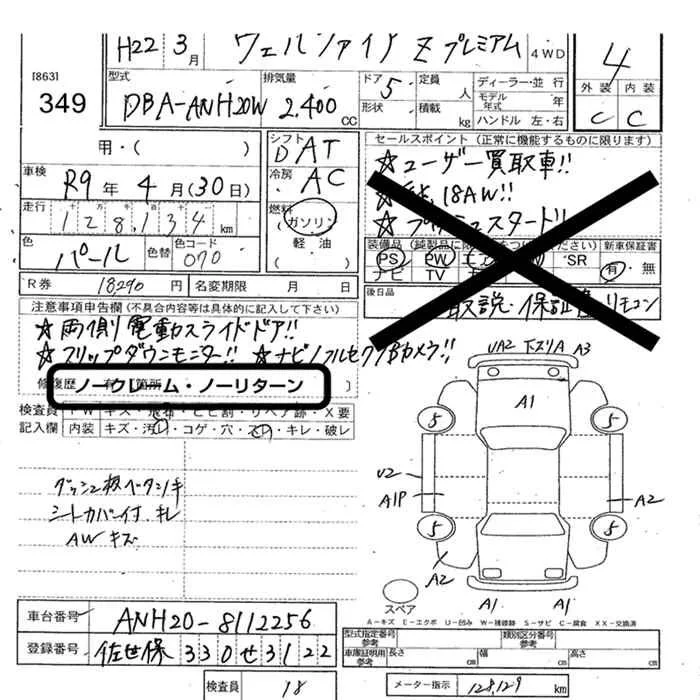 H22 3月 ヴェルファイア Z プレミアム 4WD 4
[863] 型式 排気量 ドア 5 定員 人 ディーラー・並行 外装 内装
349 DBA-ANH20W 2.400 CC 形状 積載 kg モデル年式 年 C C
ハンドル 左・右
甲・( ) シフト D AT セールスポイント (正常に機能するものに限ります)
車検 R9年 4月 (30日) 冷房 AC ☆ユーザー買取車!!
走行 128,134 km 燃料 ガソリン 18AW!!
軽油 ☆プッシュスタート!!
色 パール 色替 色コード 070
装備品 PS PW SR 新車保証書
ナビ TV 有・無
R券 18290円 名変期限 月 日 後日品 取説・保証書 リモコン
注意事項申告欄 (不具合内容等は具体的に記入して下さい)
☆両側電動スライドドア!!
☆フリップダウンモニター!! ☆ナビ/フルセグ/Bカメラ!!
修復歴 ノークレーム・ノーリターン
検査員 FW キズ・飛石・ヒビ割・リペア跡・X要
記入欄 内装 キズ・汚レ・コゲ・穴・スレ・キレ・破レ
シートカバー付 キレ
AW キズ
UA2 下スリA A3
A1
5 5
U2
A1P A2
5 5
A2
スペア A1 A1
A-キズ E-エクボ U-凹み W-補修跡 S-サビ C-腐食 XX-交換済
車台番号 ANH20-8112256
登録番号 佐世保 330 せ 3122
型式指定番号 参考 類別区分番号 参考
車庫証明用 参考 長さ 幅 高さ cm cm cm
検査員 18 メーター指示 128,129 km